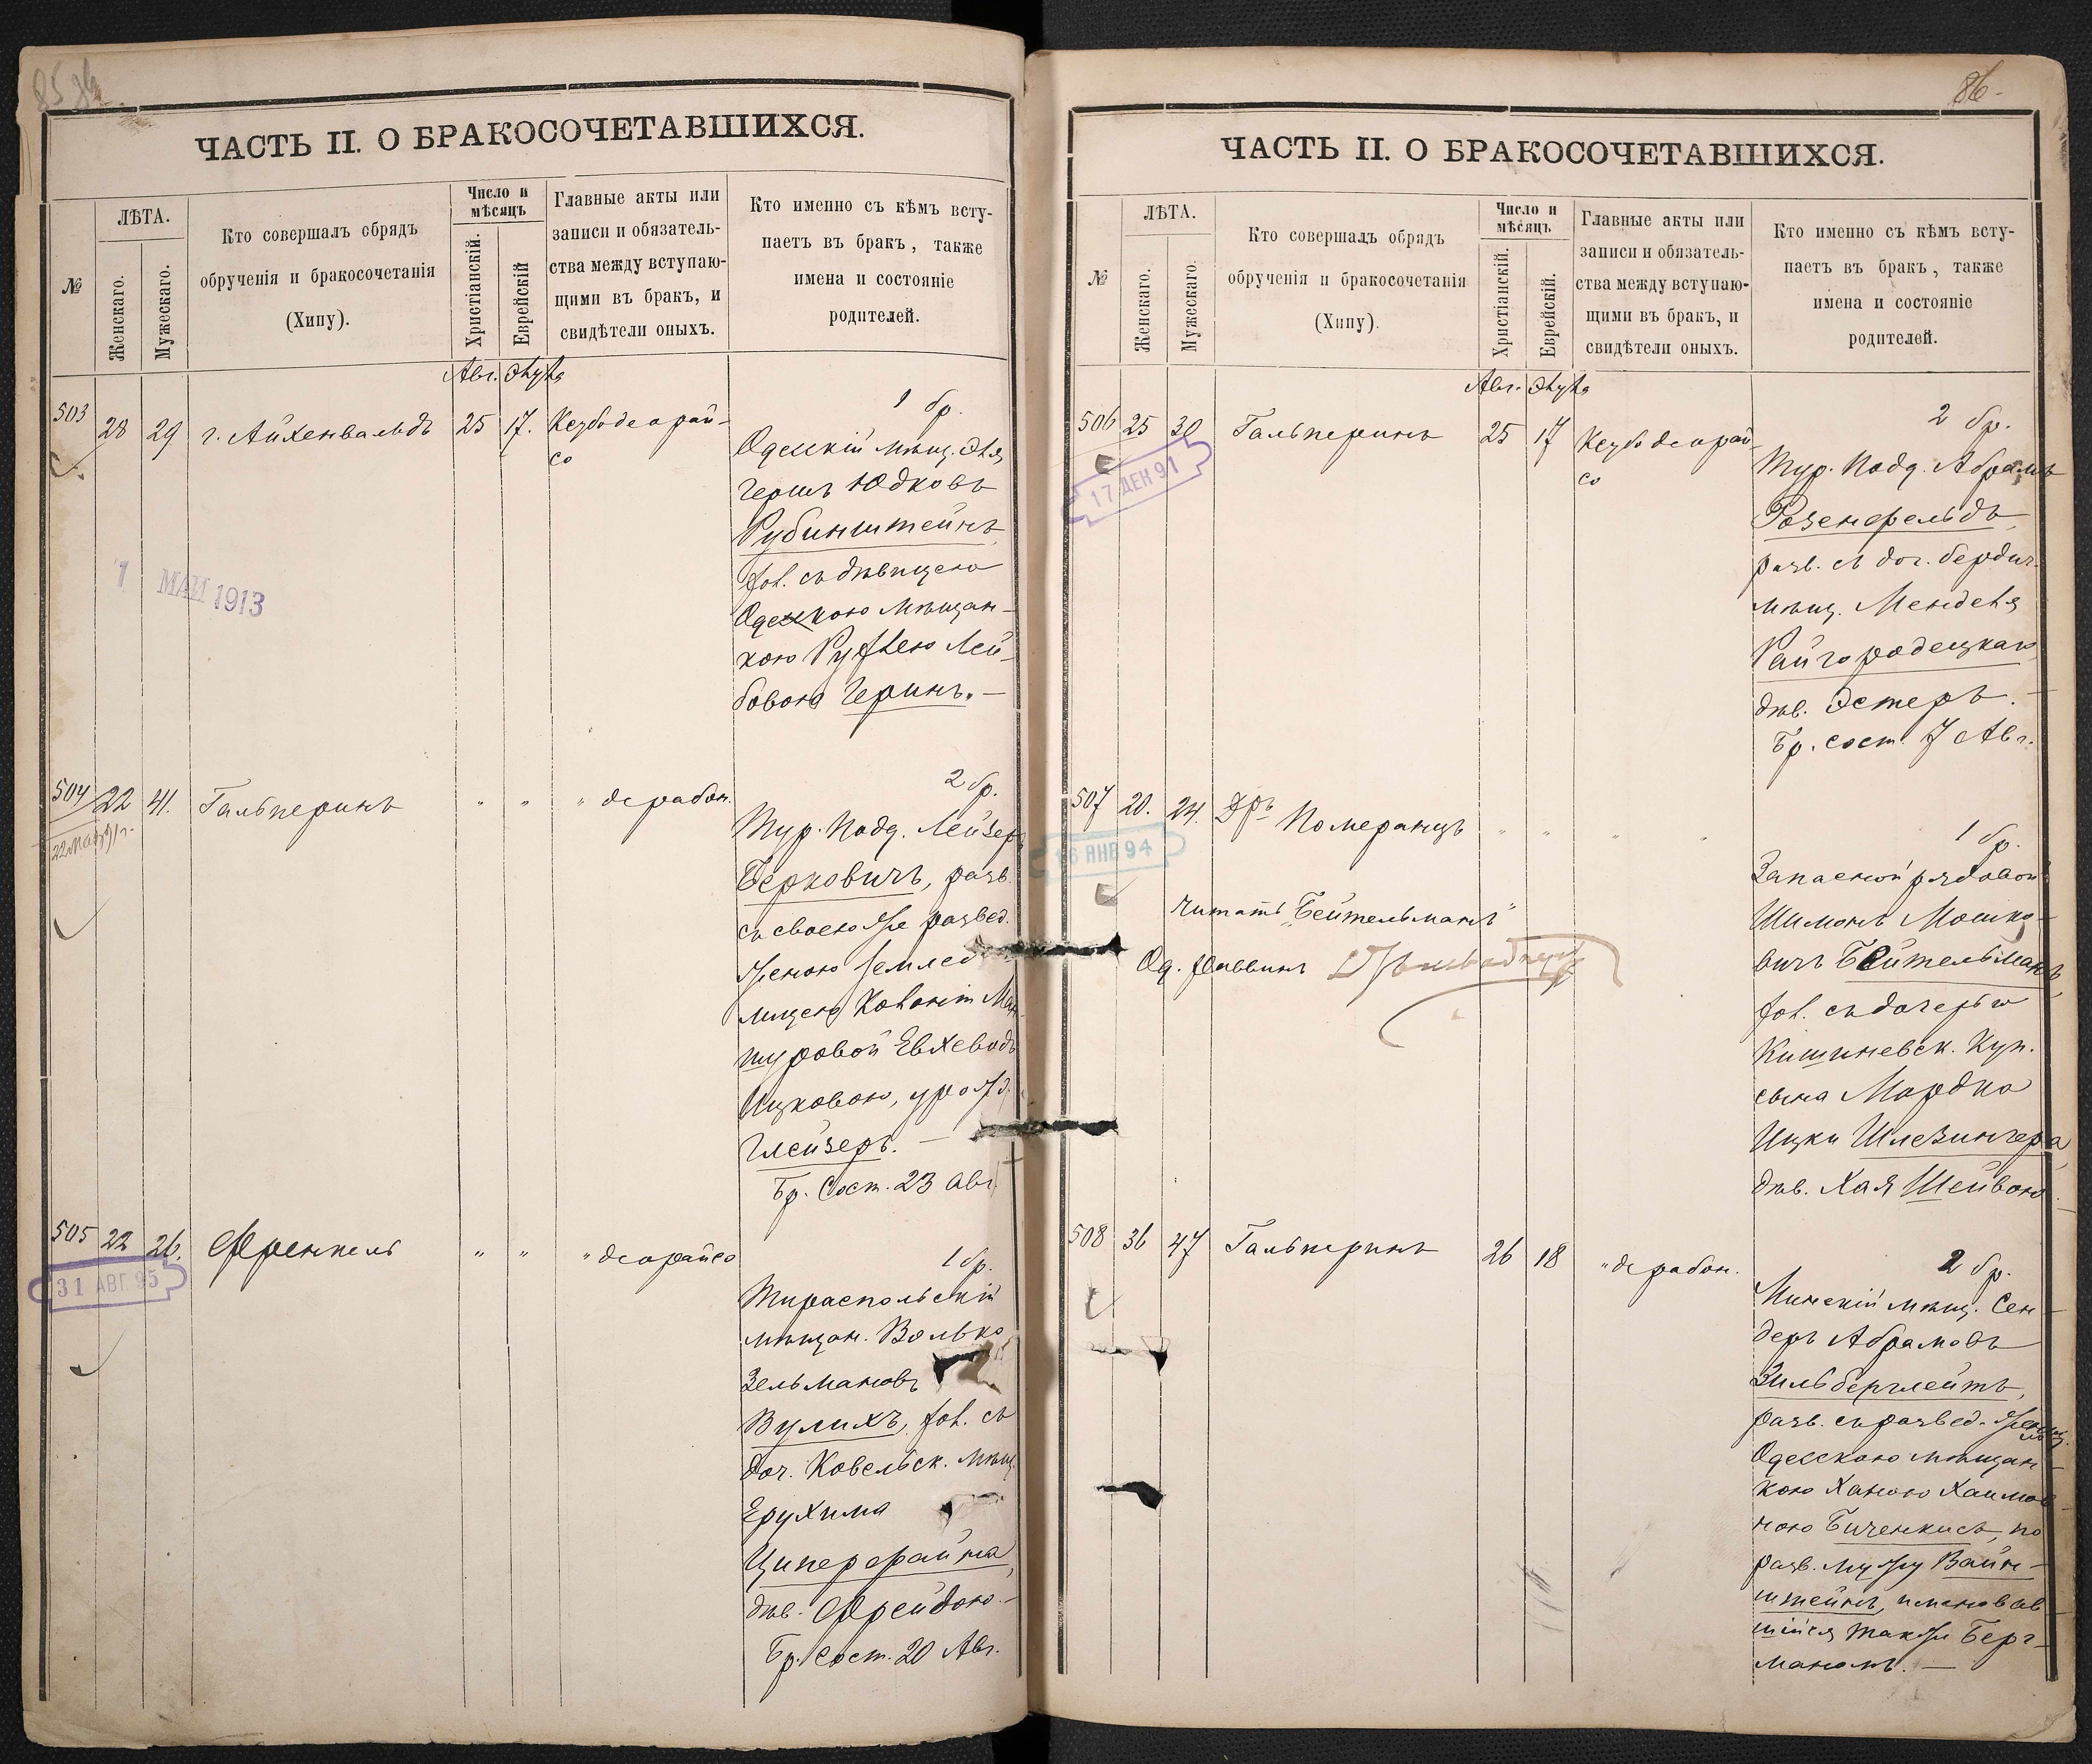 85
ЧАСТЬ II. О БРАКОСОЧЕТАВШИХСЯ.
№
ЛѢТА.
Женскаго.
Мужескаго.
Кто совершалъ обрядъ
обрученія и бракосочетанія
(Хипу).
Число и
мѣсяцъ
Христіанскій.
Еврейскій
Главные акты или
записи и обязатель-
ства между вступаю-
щими въ бракъ, и
свидѣтели оныхъ.
Кто именно съ кѣмъ всту-
паетъ въ бракъ, также
имена и состояніе
родителей.
Авг. Элула
503 28 29 г. Айхенвальдъ 25 17. Кезубо деорай-
со
1 бр.
Одесскій мѣщ. Эля
Гершъ Юдковъ
Рубинштейнъ,
хол. съ дѣвицею
Одесскою мѣщан-
кою Рухлею Лей-
бовою Геринъ. —
1 МАЙ 1913
504 22 41. Гальперинъ " " " дерабон.
22 мая 91 г.
2 бр.
Тур. Подд. Лейзеръ
Берковичъ, разв.
съ своею же развед.
женою землед
лицею Колоніи
Ицковою, урожд.
Глейзеръ. —
Бр. Сост. 23 Авг.
505 22 26. Френкель " " " деорайсо
31 АВГ. 95
1 бр.
Тираспольскій
мѣщан. Волько
Зельмановъ
Вулихъ, хол. съ
доч. Ковельск. мѣщ.
Ерухима
Циперфайна,
дѣв. Фрейдою. —
Бр. Сост. 20 Авг.
86.
ЧАСТЬ II. О БРАКОСОЧЕТАВШИХСЯ.
№
ЛѢТА.
Женскаго.
Мужескаго.
Кто совершалъ обрядъ
обрученія и бракосочетанія
(Хипу).
Число и
мѣсяцъ
Христіанскій.
Еврейскій.
Главные акты или
записи и обязатель-
ства между вступаю-
щими въ бракъ, и
свидѣтели оныхъ.
Кто именно съ кѣмъ всту-
паетъ въ бракъ, также
имена и состояніе
родителей.
Авг. Элула
506 25 30 Гальперинъ 25 17 Кезубо деорай-
со
17 ДЕК 91
2 бр.
Тур. Подд. Абрамъ
Розенфельдъ,
разв. съ доч. бердич.
мѣщ. Менделя
Райгородецкаго,
дѣв. Эстеръ. —
Бр. сост. 7 Авг.
507 20. 24. Дръ Померанцъ " " " "
16 ЯНВ 94
читать „Бейтельманъ"
Од. Раввинъ
1 бр.
Запасной рядовой
Шимонъ Мошко-
вичъ Бейтельманъ,
хол. съ дочерью
Кишиневск. Куп.
сына Мордко
Ицки Шлезингера,
дѣв. Хая Шейвою.
508 36 47 Гальперинъ 26 18 " дерабон.
2 бр.
Минскій мѣщ. Сен-
деръ Абрамовъ
Зильберглейтъ,
разв. съ развед.
Одесскою мѣщан-
кою Ханою Хаимов-
ною Биченкисъ, по
разв. мужу Вайн-
штейнъ, именовав-
шійся также Берг-
маномъ. —